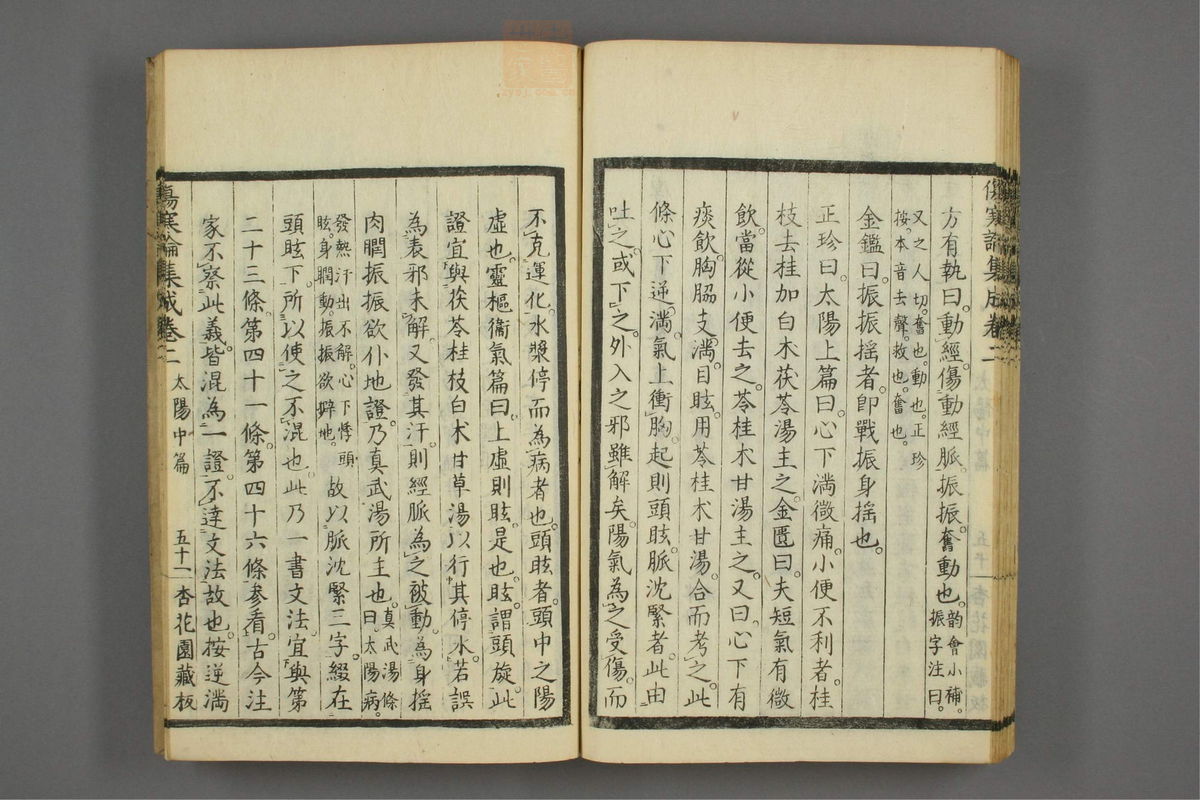 傷寒論集成卷二
方有執曰。動經。傷動經脈。振振。奮動也。韵會小補。振字注曰。
又之人切。奮也。動也。正珍按。本音去聲。救也。奮也。
金鑑曰。振振搖者。即戰振身搖也。
正珍曰。太陽上篇曰。心下滿微痛。小便不利者。桂
枝去桂加白朮茯苓湯主之。金匱曰。夫短氣有微
飲。當從小便去之。苓桂朮甘湯主之。又曰。心下有
痰飲。胸脇支滿。目眩。用苓桂朮甘湯。合而考之。此
條心下逆滿。氣上衝胸。起則頭眩。脈沈緊者。此由
吐之。或下之。外入之邪雖解矣。陽氣為之受傷。而
不克運化。水漿停而為病者也。頭眩者。頭中之陽
虛也。靈樞衞氣篇曰。上虛則眩是也。眩。謂頭旋。此
證宜與茯苓桂枝白朮甘草湯以行其停水。若誤
為表邪未解。又發其汗。則經脈為之被動。為身搖
肉瞤振振欲仆地證。乃真武湯所主也。真武湯條曰。太陽病。
發熱汗出不解。心下悸。頭眩。身瞤動。振振欲擗地。故以脈沈緊三字。綴在
頭眩下。所以使之不混也。此乃一書文法。宜與第
二十三條。第四十一條。第四十六條參看。古今注
家不察此義。皆混為一證。不達文法故也。按逆滿
傷寒論集成卷二 太陽中篇 五十二 杏花園藏板